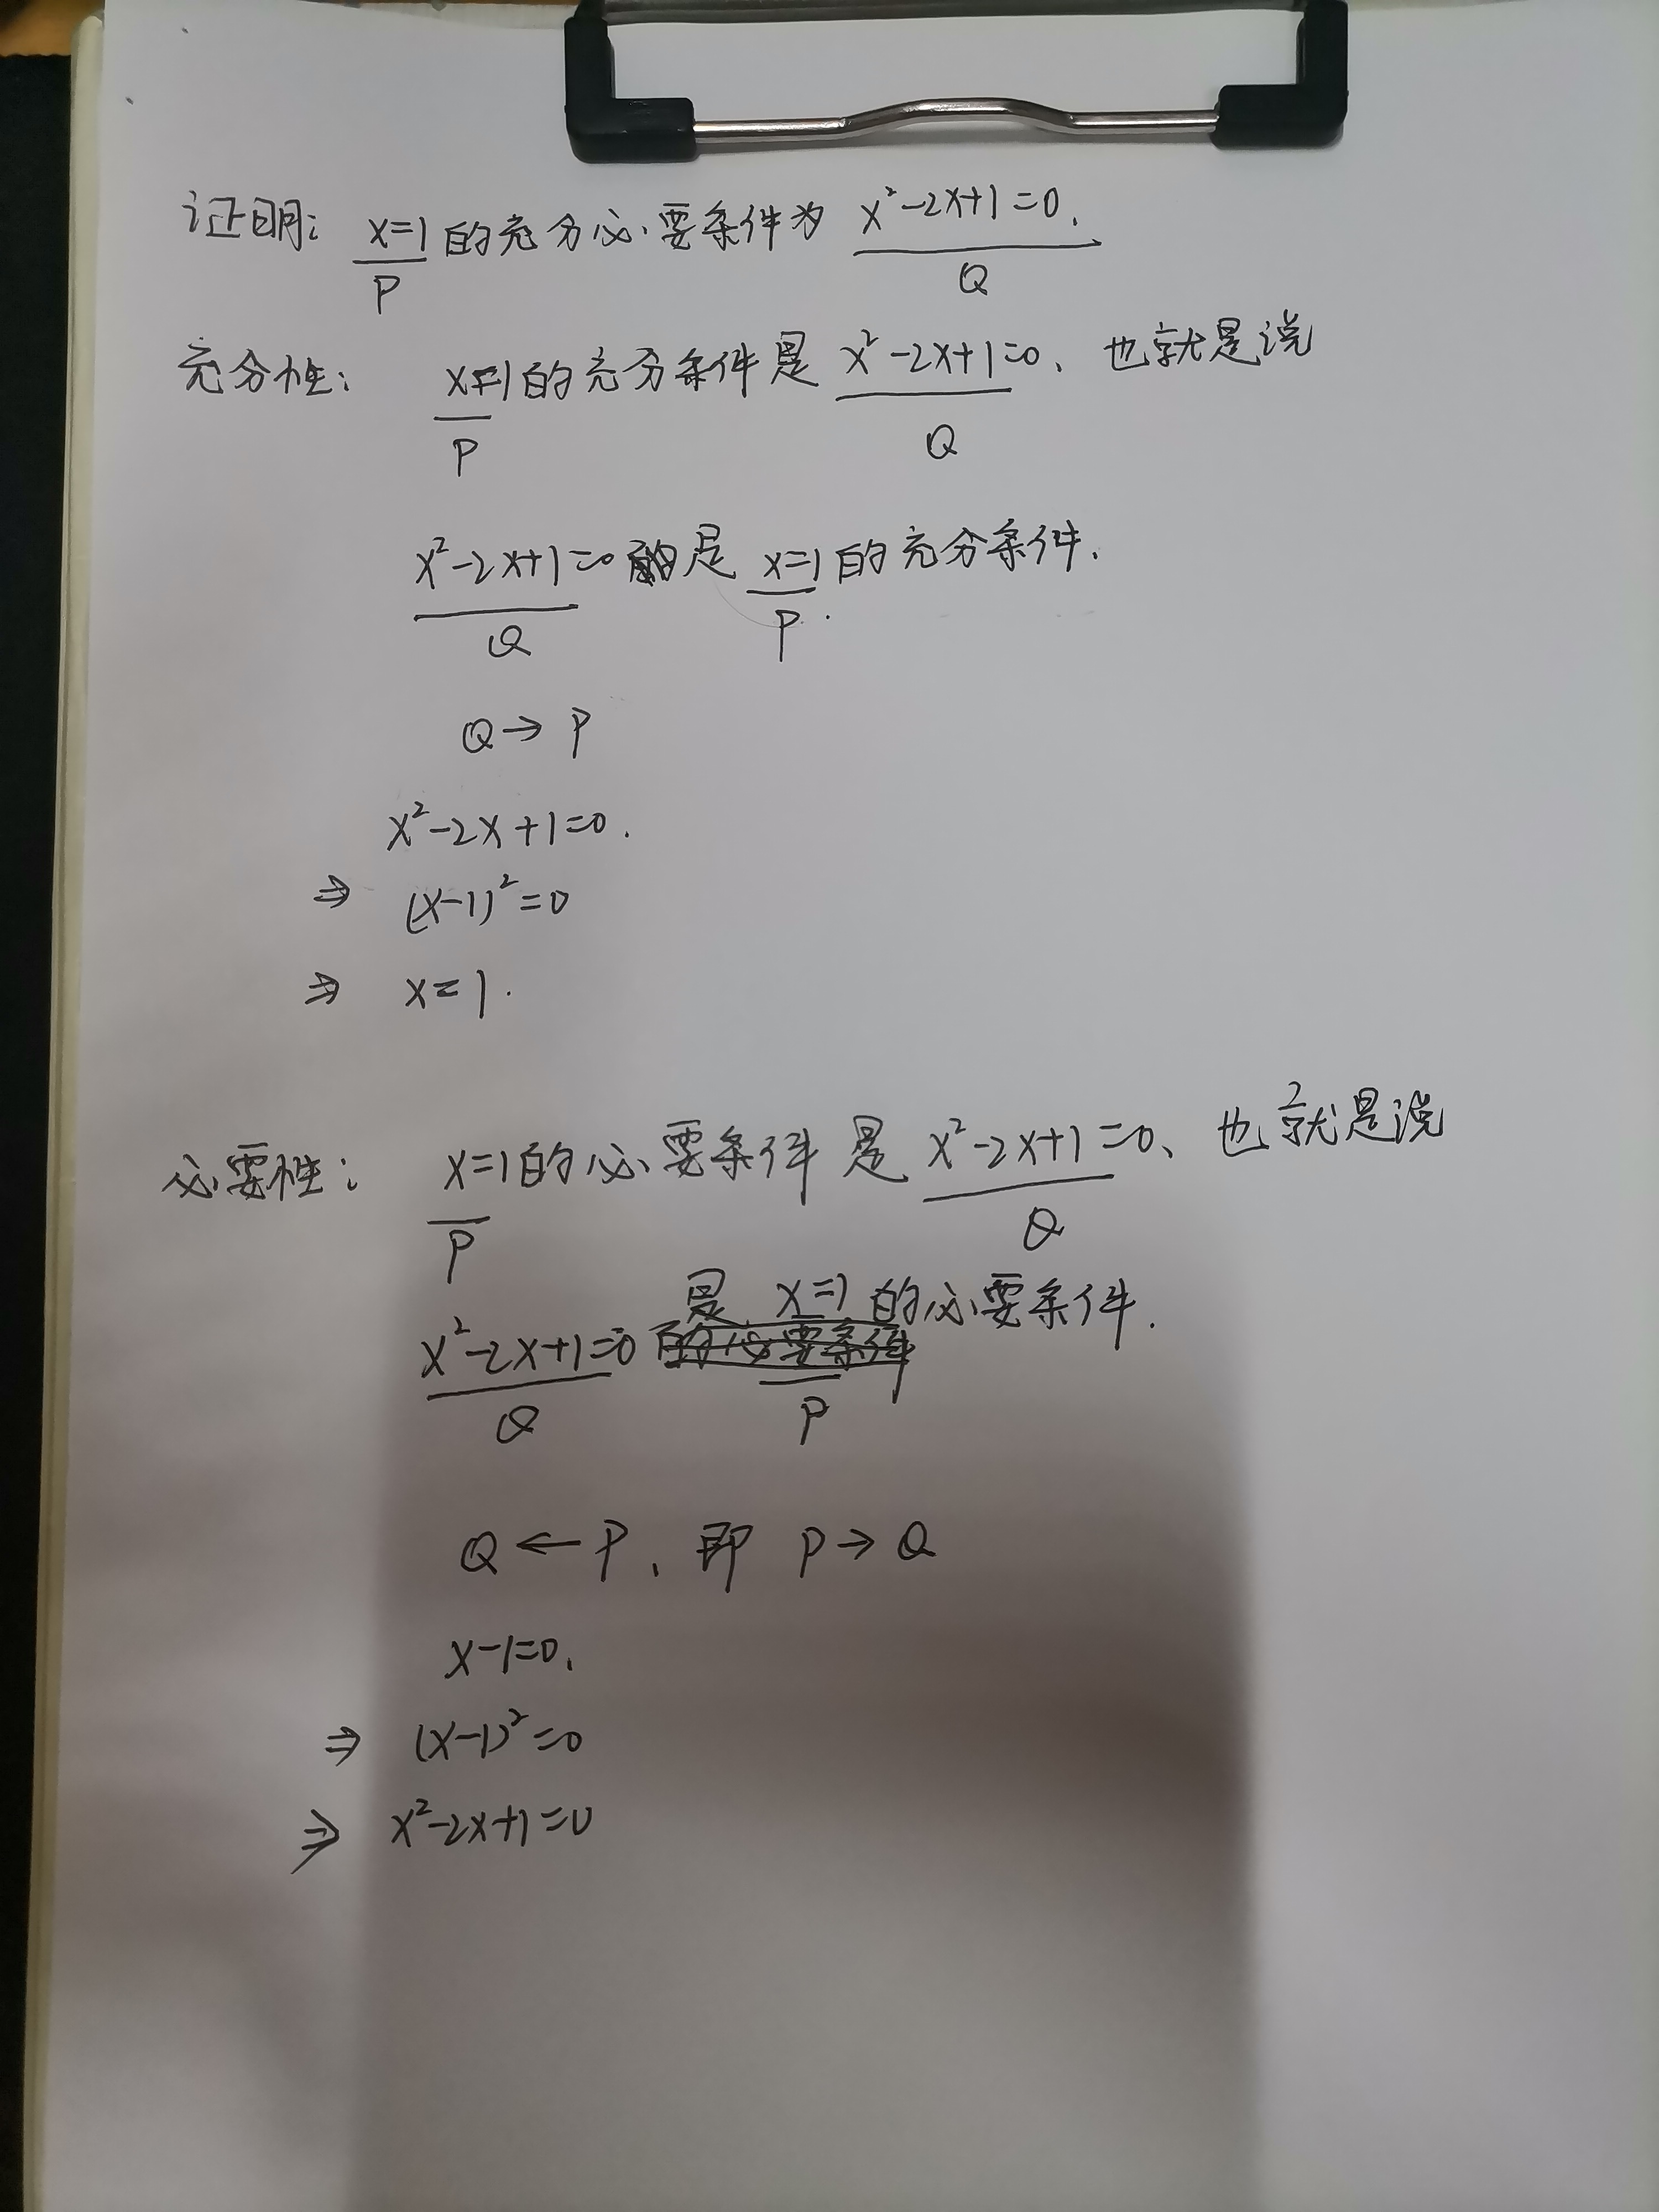 证明: x=1的充分必要条件为 x²-2x+1=0.
P Q
充分性: x=1的充分条件是 x²-2x+1=0、也就是说
P Q
x²-2x+1=0 是 x=1 的充分条件.
Q P.
Q→P
x²-2x+1=0.
⇒ (x-1)²=0
⇒ x=1.
必要性: x=1的必要条件是 x²-2x+1=0、也就是说
P Q
x²-2x+1=0 是 x=1 的必要条件.
Q P
Q←P、即 P→Q
x-1=0.
⇒ (x-1)²=0
⇒ x²-2x+1=0